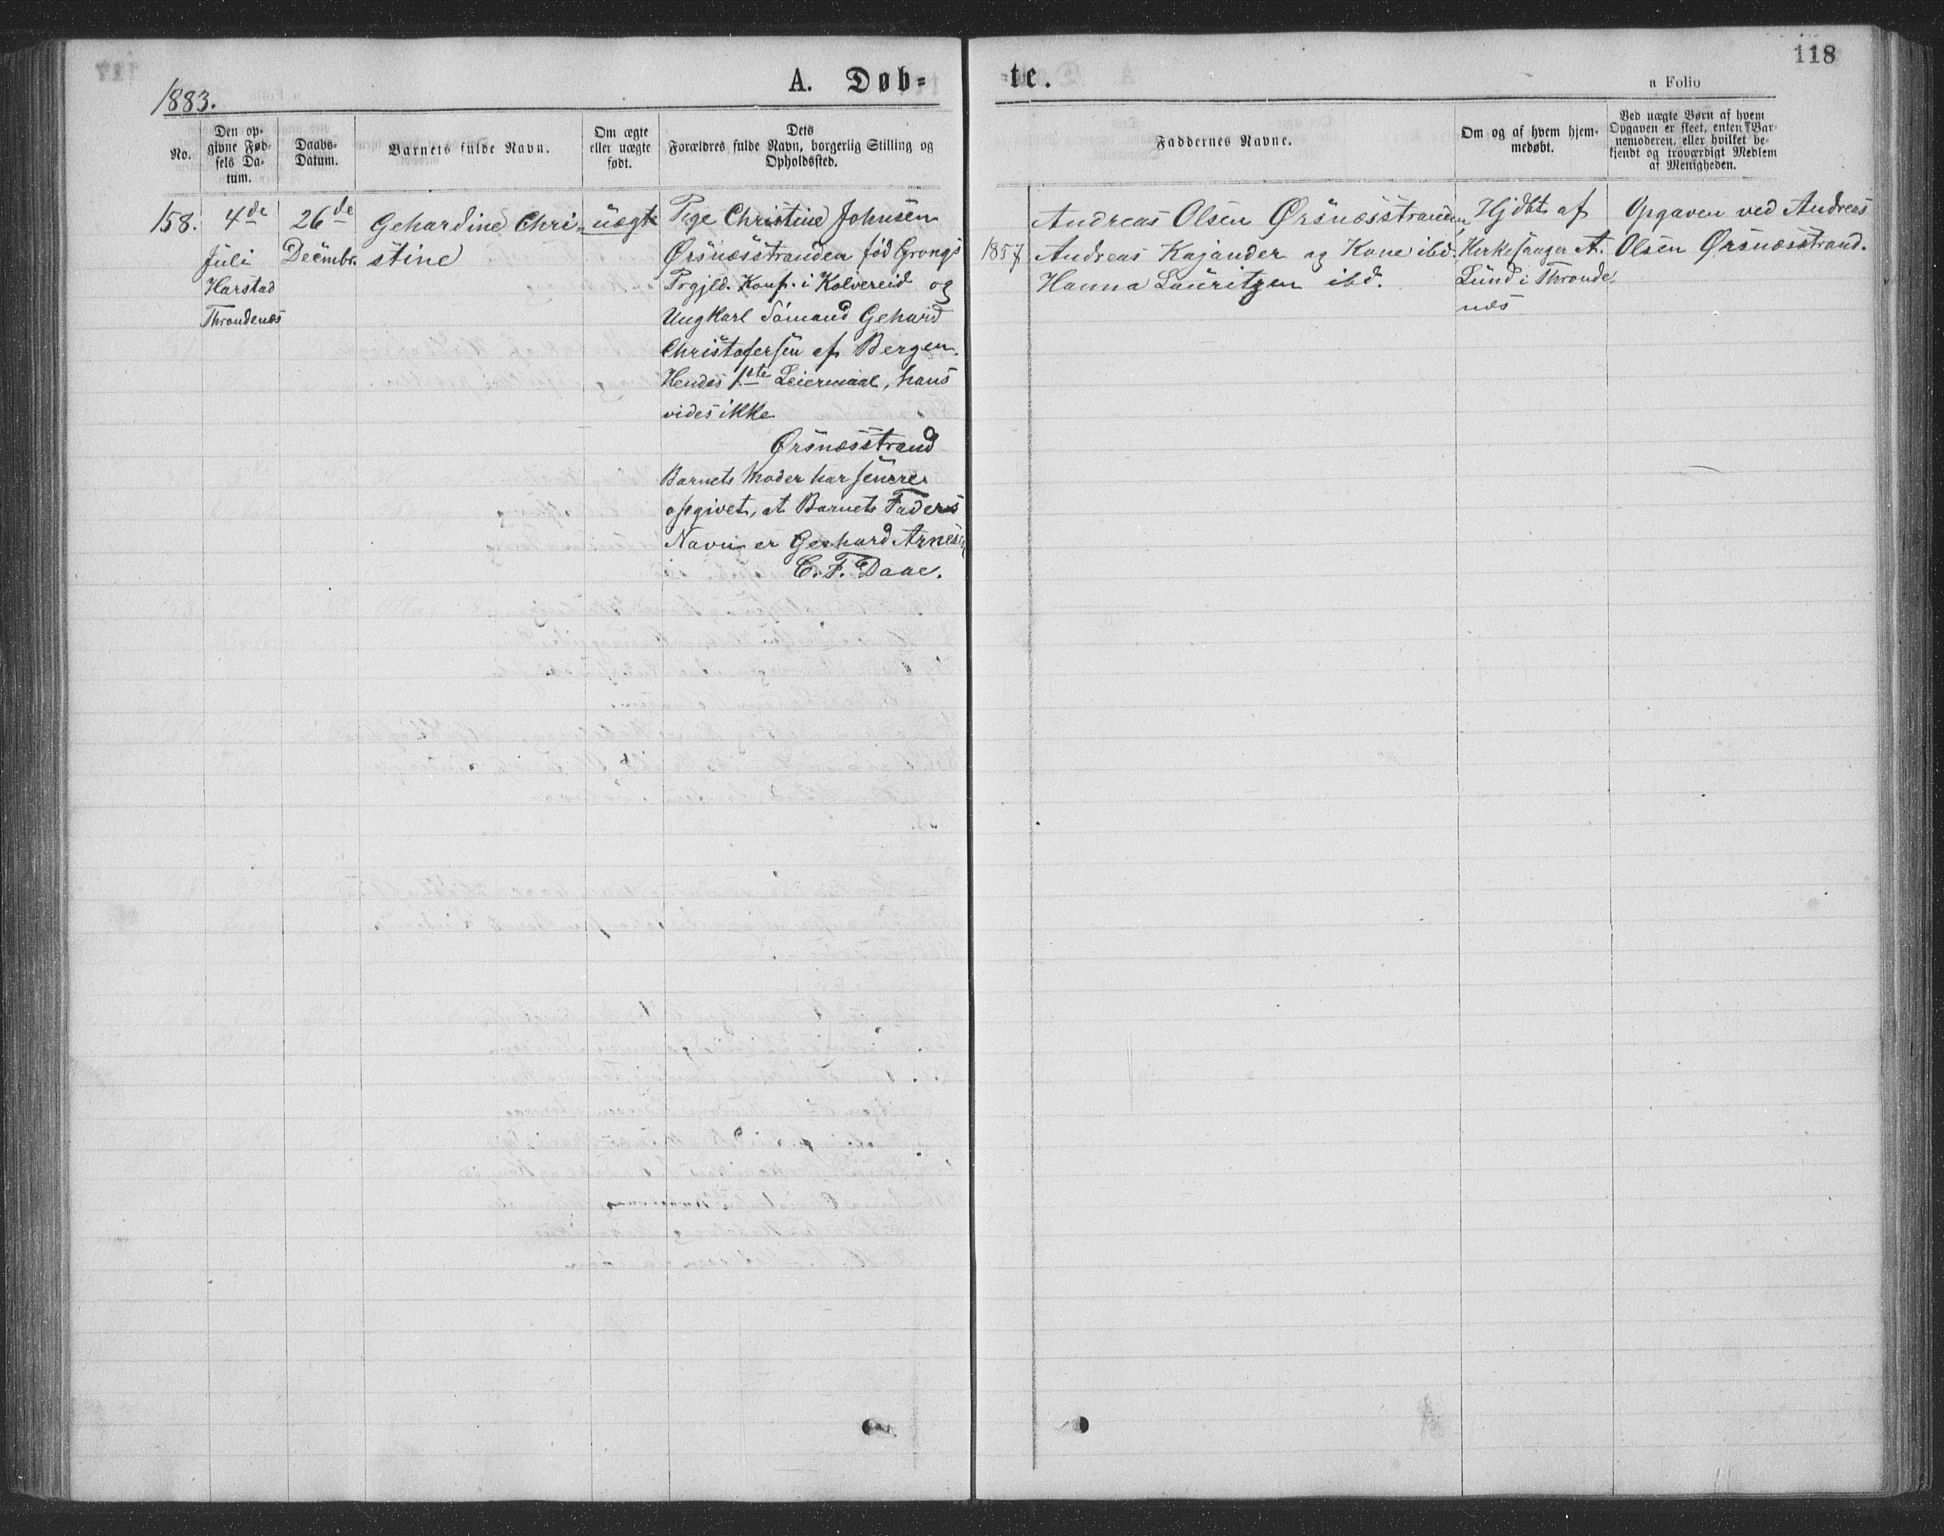 118
1883.
A. Døb=
te.
a Folio
No.
Den op-
givne Fød-
sels Da-
tum.
Daabs-
Datum.
Barnets fulde Navn.
Om ægte
eller uægte
født.
Dets
Forældres fulde Navn, borgerlig Stilling og
Opholdssted.
Faddernes Navne.
Om og af hvem hjem-
medøbt.
Ved uægte Børn af hvem
Opgaven er skeet, enten Bar-
nemoderen, eller hvilket be-
kjendt og troværdigt Medlem
af Menigheden.
158.
4de
Juli
Harstad
Throndenæs
26de
Decmbr.
Gehardine Chri-
stine
uægte
Pige Christine Johnsen
Ørsnæsstranden fød Grongs
Prgjld. Konf. i Kolvereid og
Ungkarl Sømand Gehard
Christofersen af Bergen.
Hendes 1ste Leiermaal, hans
vides ikke
Ørsnæsstrand
Barnets Moder har senere
opgivet, at Barnets Faders
Navn er Gerhard Arnesen
C. F. Daae.
1857
Andreas Olsen Ørsnæsstranden,
Andreas Kajander og Kone ibd.
Hanna Lauritzen ibd.
Hjdbt af
Kirkesanger A.
Lund i Thronde-
næs
Opgaven ved Andreas
Olsen Ørsnæsstrand.